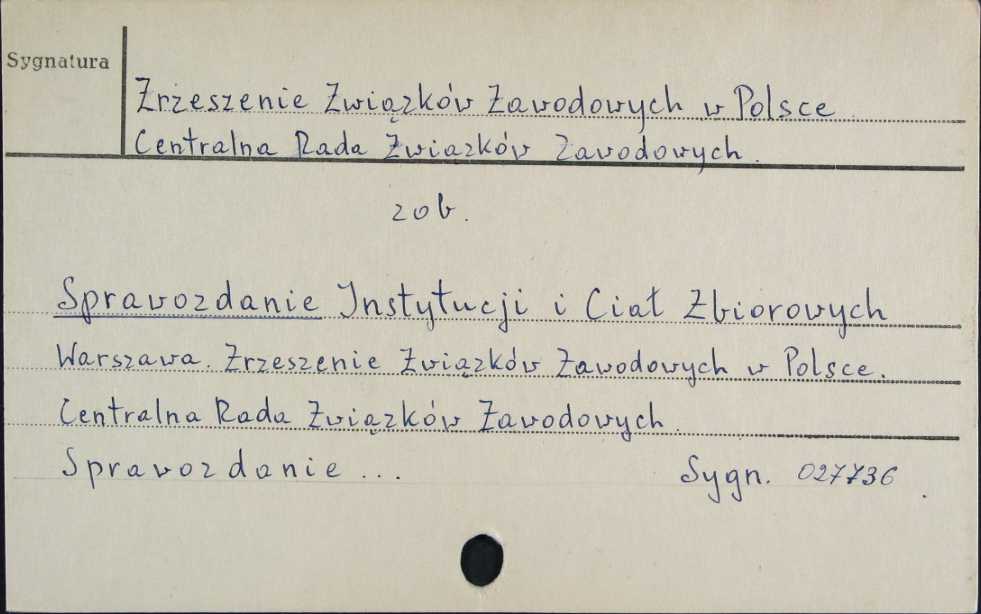 Sygnatura
Zrzeszenie Związków Zawodowych w Polsce
Centralna Rada Związków Zawodowych.
zob.
Sprawozdanie Instytucji i Ciał Zbiorowych
Warszawa. Zrzeszenie Związków Zawodowych w Polsce.
Centralna Rada Związków Zawodowych.
Sprawozdanie ... Sygn. 027736.